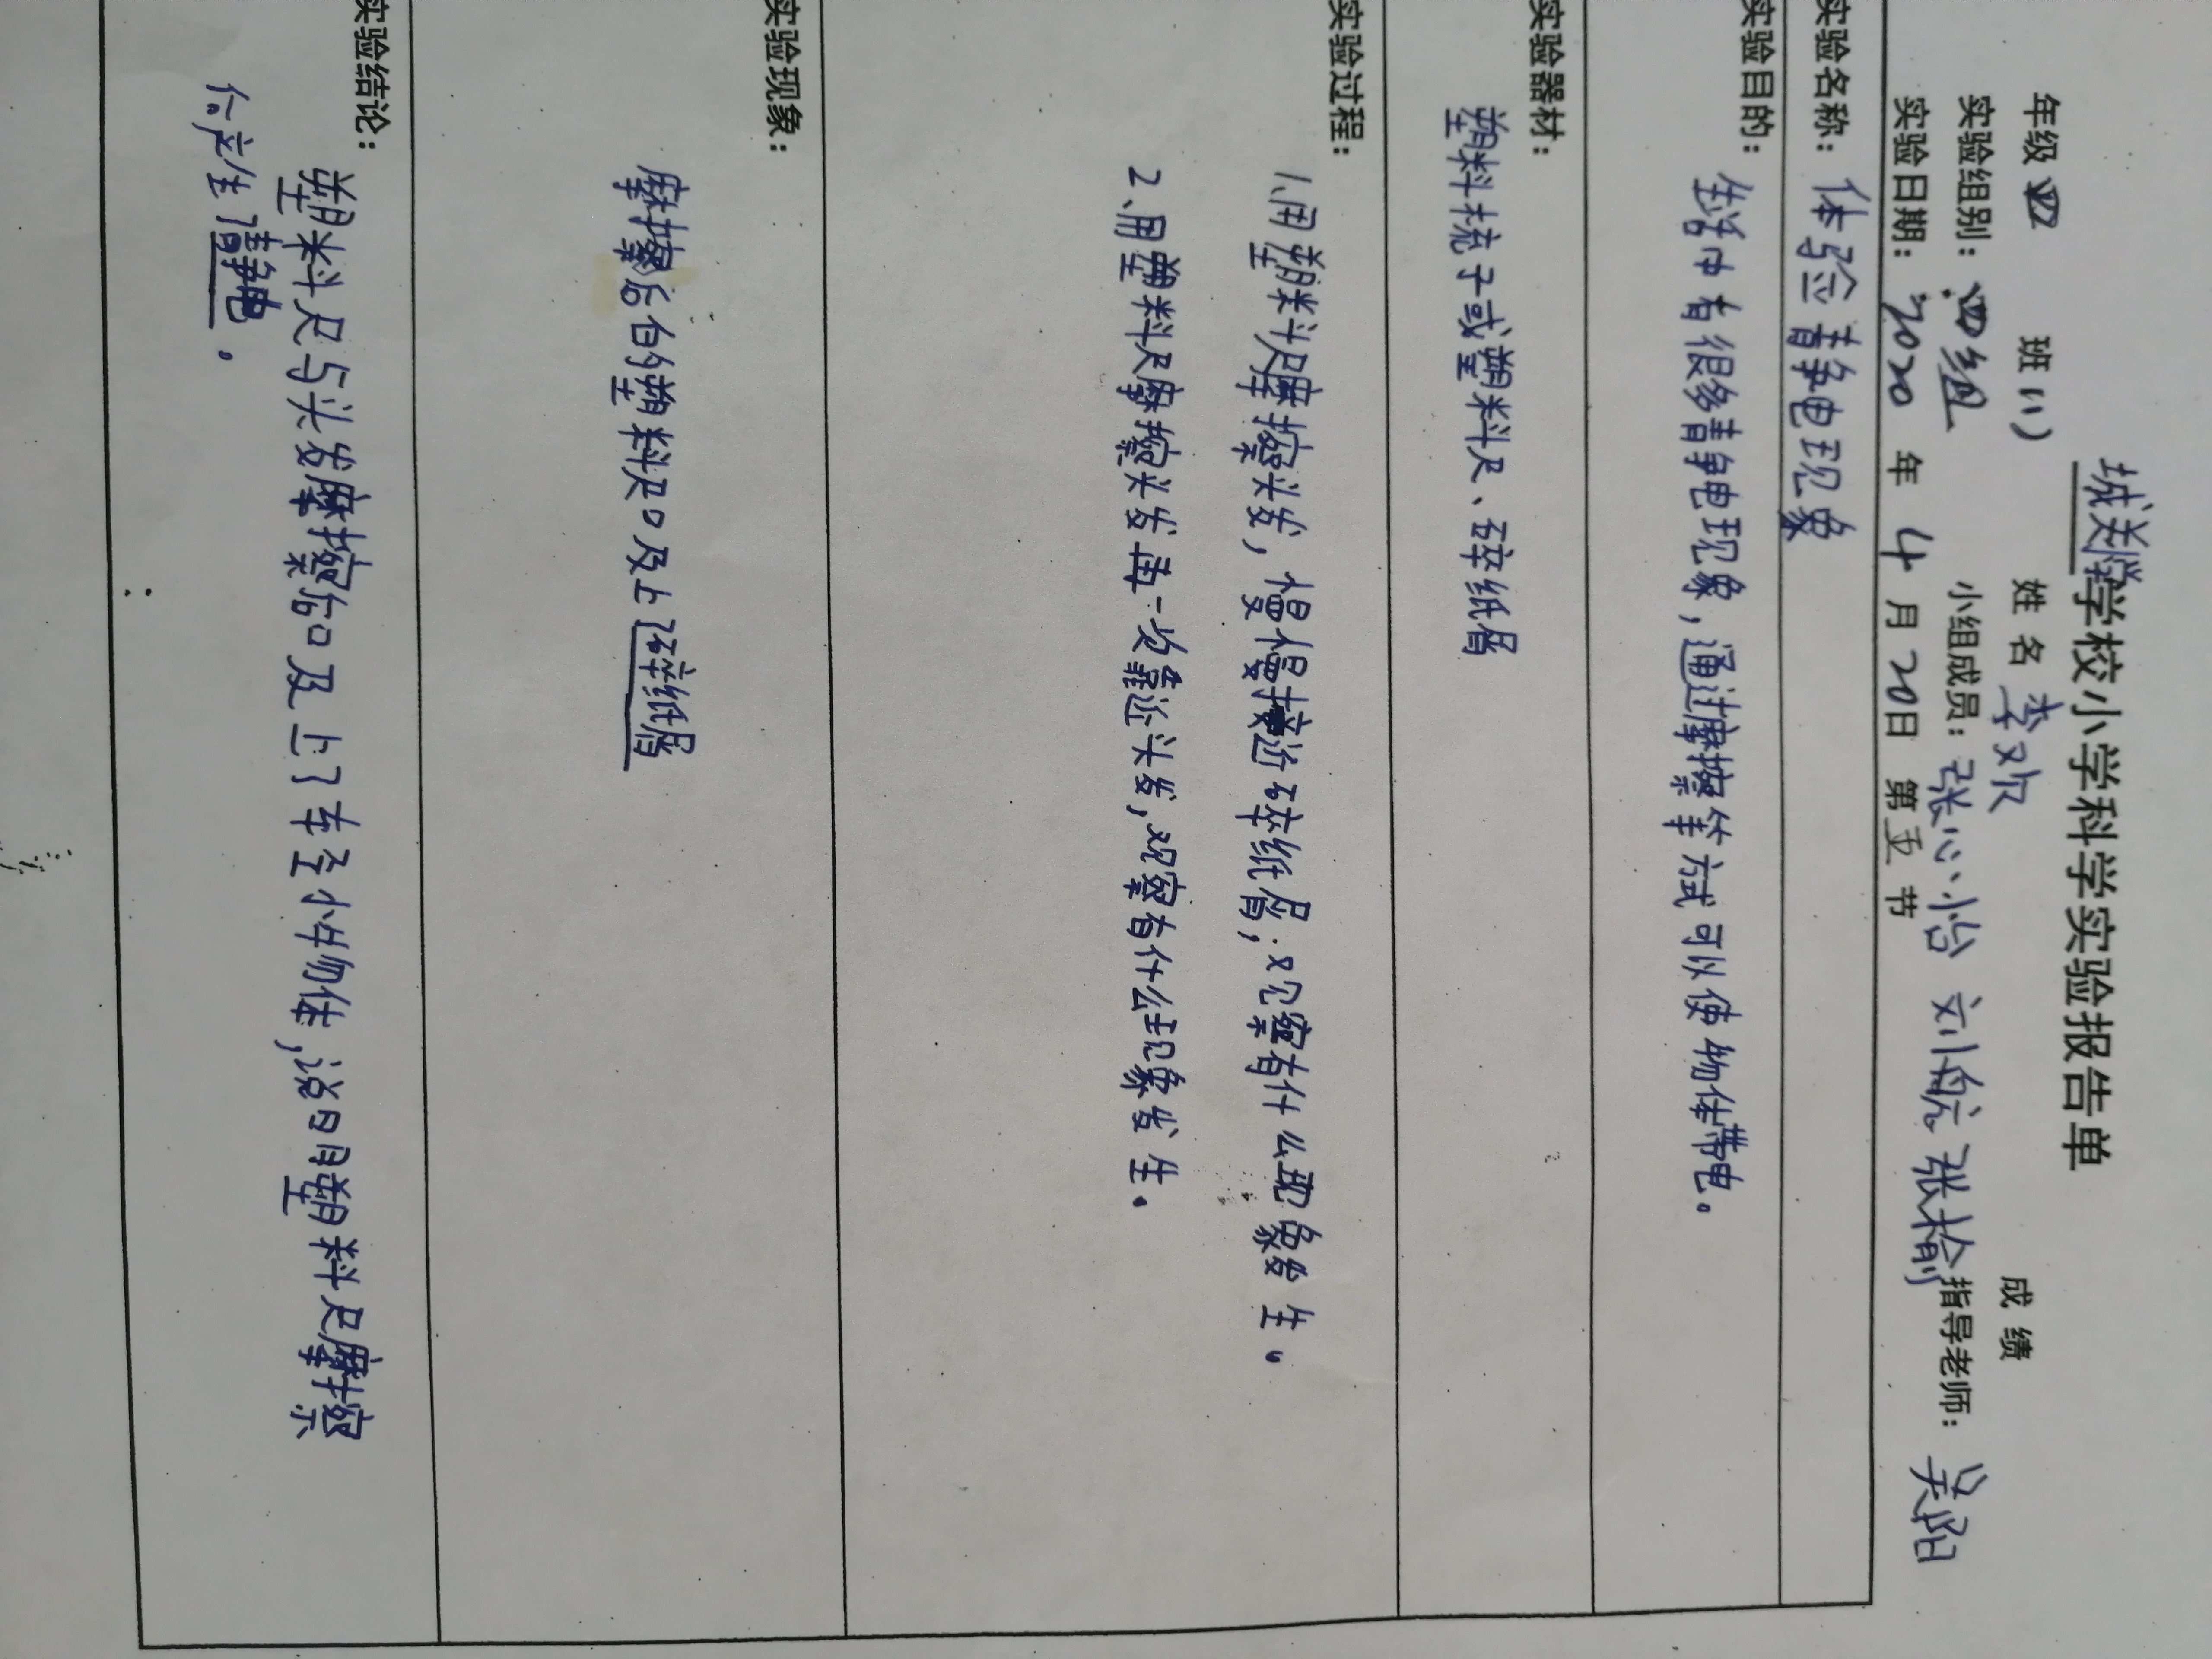 城关小学学校小学科学实验报告单
年级 四 班(1) 姓名 李欢 成绩
实验组别：四组 小组成员：张心怡 刘 张榆 指导老师：吴阳
实验日期：2020 年 4 月 20日 第五节
实验名称：体验静电现象
实验目的：
生活中有很多静电现象，通过摩擦等方式可以使物体带电。
实验器材：
塑料梳子或塑料尺、碎纸屑
实验过程：
1、用塑料尺摩擦头发，慢慢接近碎纸屑，观察有什么现象发生。
2、用塑料尺摩擦头发再一次靠近头发，观察有什么现象发生。
实验现象：
摩擦后的塑料尺吸上碎纸屑
实验结论：
塑料尺与头发摩擦后吸上了轻小物体，说明塑料尺摩擦
后产生了静电。